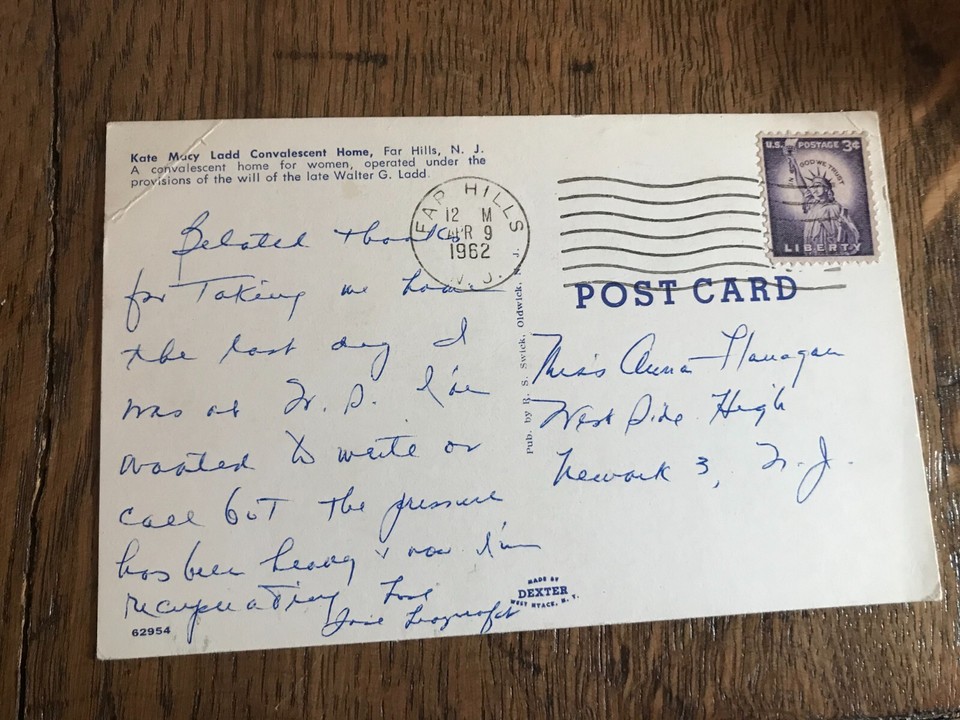 Kate Macy Ladd Convalescent Home, Far Hills, N. J.
A convalescent home for women, operated under the
provisions of the will of the late Walter G. Ladd.
Belated thanks
for taking me home
the last day I
was at W. S. I've
wanted to write or
call but the pressure
has been heavy & now I'm
recuperating Love
62954
FAR HILLS
12 M
APR 9
1962
N. J.
Pub. by R. S. Swick, Oldwick, N. J.
MADE BY
DEXTER
WEST NYACK, N. Y.
U.S. POSTAGE 3¢
IN GOD WE TRUST
LIBERTY
POST CARD
Miss Anna Flanagan
West Side High
Newark 3, N. J.